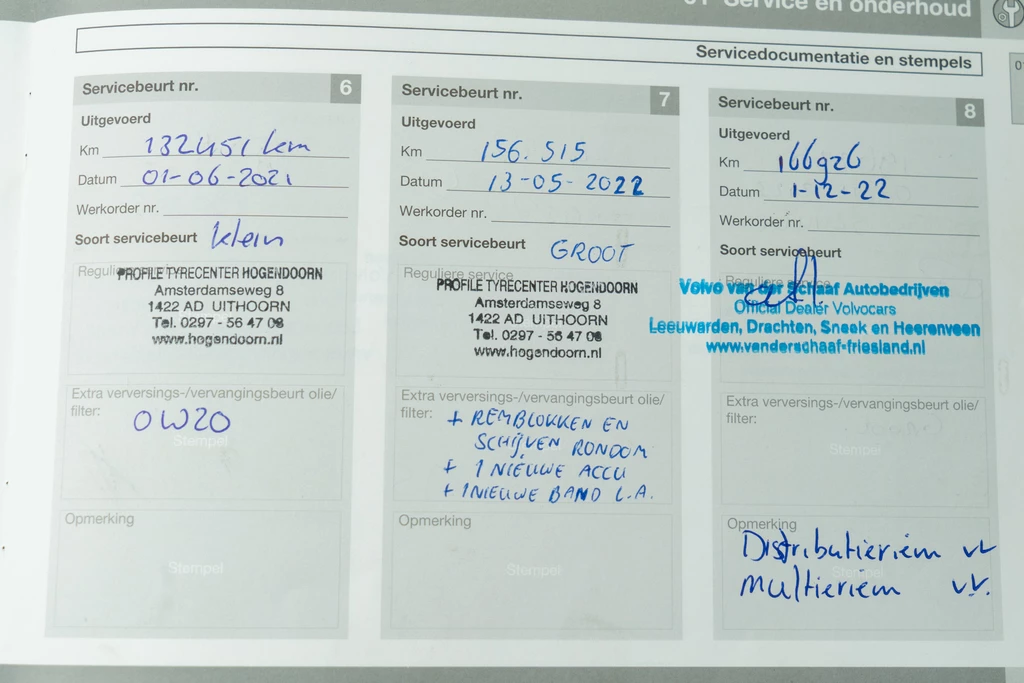 01 Service en onderhoud
Servicedocumentatie en stempels
Servicebeurt nr. 6
Uitgevoerd
Km 132451 km
Datum 01-06-2021
Werkorder nr.
Soort servicebeurt klein
Reguliere service
PROFILE TYRECENTER HOGENDOORN
Amsterdamseweg 8
1422 AD UITHOORN
Tel. 0297 - 56 47 08
www.hogendoorn.nl
Extra verversings-/vervangingsbeurt olie/
filter: 0W20
Stempel
Opmerking
Stempel
Servicebeurt nr. 7
Uitgevoerd
Km 156.515
Datum 13-05-2022
Werkorder nr.
Soort servicebeurt GROOT
Reguliere service
PROFILE TYRECENTER HOGENDOORN
Amsterdamseweg 8
1422 AD UITHOORN
Tel. 0297 - 56 47 08
www.hogendoorn.nl
Extra verversings-/vervangingsbeurt olie/
filter: + REMBLOKKEN EN
SCHIJVEN RONDOM
+ 1 NIEUWE ACCU
+ 1 NIEUWE BAND L.A.
Opmerking
Stempel
Servicebeurt nr. 8
Uitgevoerd
Km 166926
Datum 1-12-22
Werkorder nr.
Soort servicebeurt
Reguliere service
Volvo van der Schaaf Autobedrijven
Official Dealer Volvocars
Leeuwarden, Drachten, Sneek en Heerenveen
www.vanderschaaf-friesland.nl
Extra verversings-/vervangingsbeurt olie/
filter:
Stempel
Opmerking
Distributieriem vv
Stempel
Multieriem v.v.